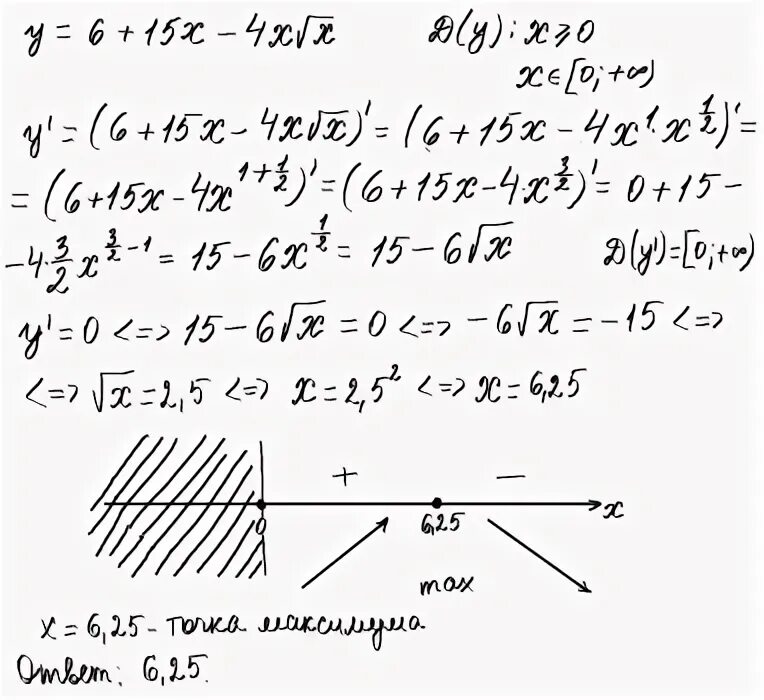 y = 6 + 15x - 4x√x D(y): x ≥ 0
x ∈ [0; +∞)
y' = (6 + 15x - 4x√x)' = (6 + 15x - 4x¹·x^{1/2})' =
= (6 + 15x - 4x^{1+1/2})' = (6 + 15x - 4·x^{3/2})' = 0 + 15 -
- 4·3/2 x^{3/2 - 1} = 15 - 6x^{1/2} = 15 - 6√x D(y') = [0; +∞)
y' = 0 <=> 15 - 6√x = 0 <=> -6√x = -15 <=>
<=> √x = 2,5 <=> x = 2,5² <=> x = 6,25
+ −
0 6,25 x
max
x = 6,25 - точка максимума
Ответ: 6,25.